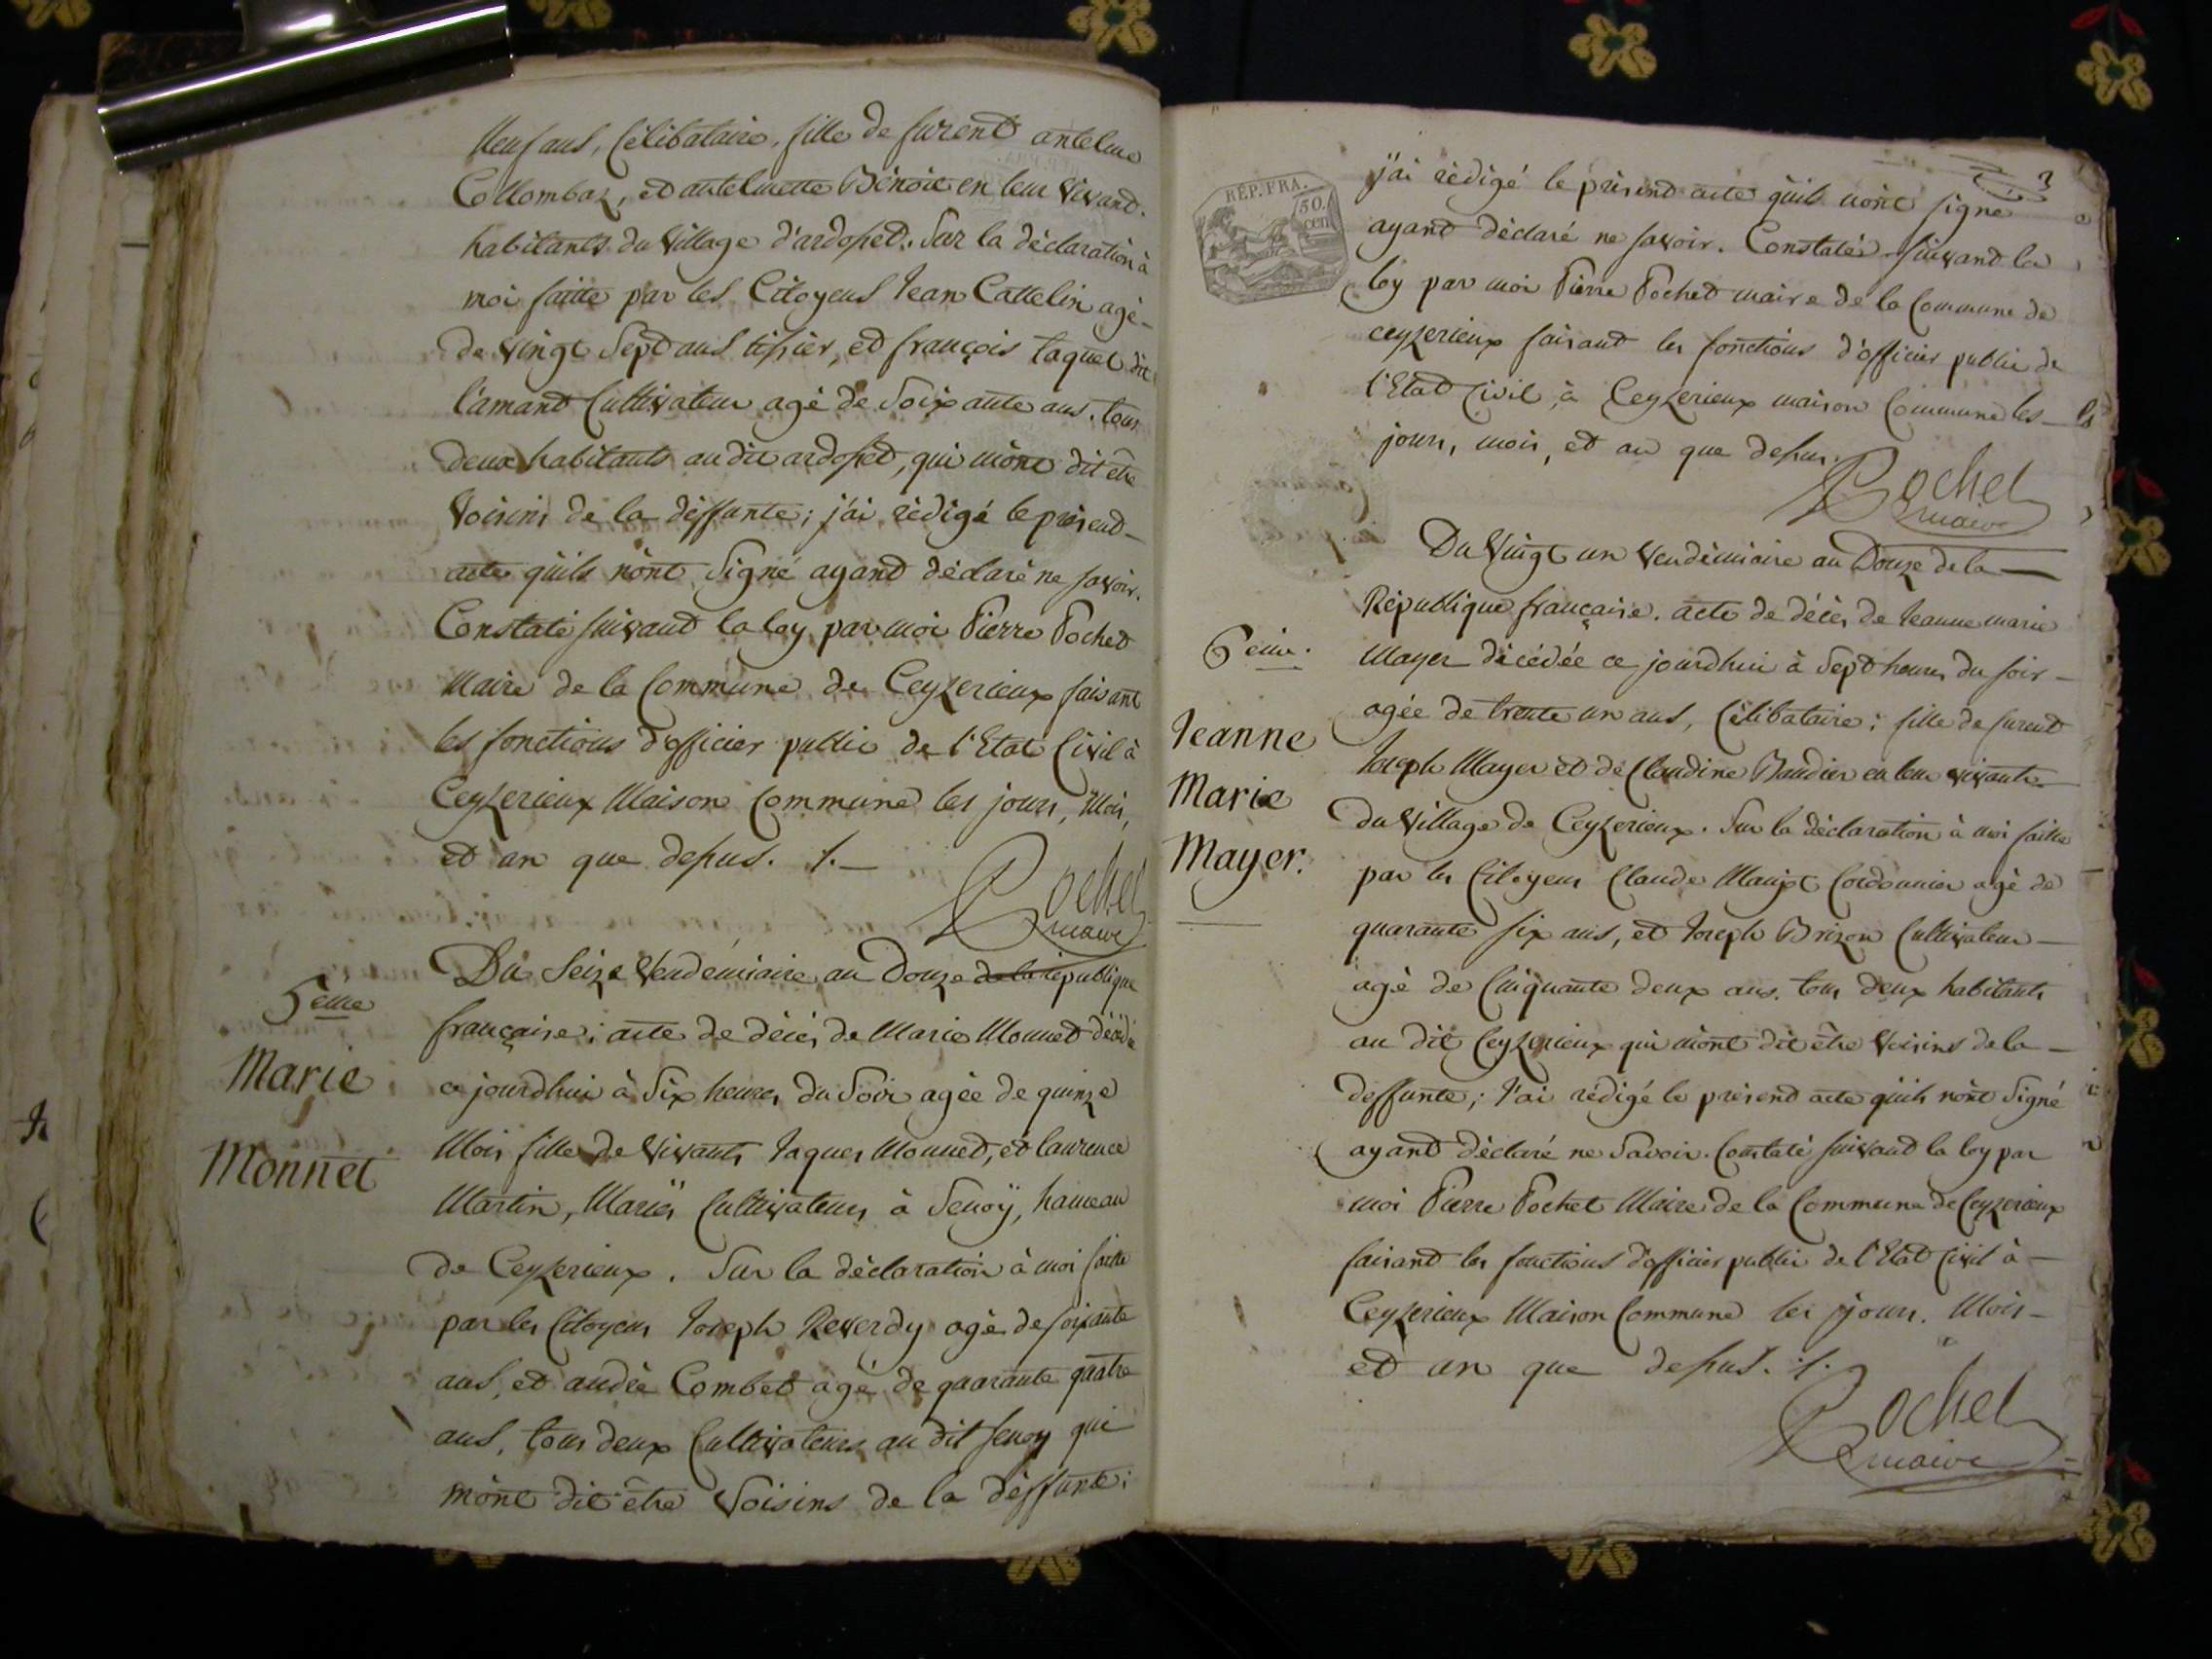 Neuf ans, Célibataire, fille de furent antelme
Collombaz, et antelmette Bénoit en leur vivant
habitants du village d'ardosset. Sur la déclaration à
moi faitte par les Citoyens Jean Cattelin agé
de vingt Sept ans tissier, et françois Jaquet dit
l'amand Cultivateur agé de Soixante ans, tous
deux habitants au dit ardosset, qui m'ont dit être
Voisins de la déffunte; j'ai rédigé le présend
acte qu'ils n'ont Signé ayand déclaré ne savoir.
Constaté suivand la loy par moi Pierre Pochet
Maire de la Commune de Ceyzerieux faisant
les fonctions d'officier public de l'Etat Civil à
Ceyzerieux Maison Commune les jours, Mois,
et an que dessus. ./.
Pochet
maire
5eme
Marie
Monnet
Du Seize Vendémiaire an Douze de la république
française; acte de décès de Marie Monnet décédé
ce jourdhui à Six heures du Soir agée de quinze
Mois fille de vivants Jaques Monnet, et laurence
Martin, Mariés Cultivateurs à Senoÿ, hameau
de Ceyzerieux. Sur la déclaration à moi faitte
par les Citoyens Joseph Reverdy agé de soixante
ans, et andré Combet agé de quarante quatre
ans, tous deux Cultivateurs au dit senoy qui
m'ont dit être Voisins de la déffunte;
3
REP. FRA.
50.
cen
j'ai rédigé le présend acte qu'ils n'ont signé
ayand déclaré ne savoir. Constaté suivand la
loy par moi Pierre Pochet maire de la Commune de
ceyzerieux faisant les fonctions d'officier public de
l'Etat Civil, à Ceyzerieux maison Commune les
jours, mois, et an que dessus.
Pochet
maire
6eme.
Jeanne
Marie
Mayer.
Du Vingt un Vendémiaire an Douze de la
République française. acte de décès de Jeanne marie
Mayer décédée ce jourdhui à Sept heures du soir
agée de trente un ans, Célibataire; fille de furent
Joseph Mayer et de Claudine Baudier en leur vivants
du Village de Ceyzerieux. Sur la déclaration à moi faitte
par les Citoyens Claude Cordonnier agé de
quarante six ans, et Joseph Brizon Cultivateur
agé de Cinquante deux ans. tous deux habitants
au dit Ceyzerieux qui m'ont dit être Voisins de la
deffunte; J'ai rédigé le présend acte qu'ils n'ont Signé
ayand déclaré ne Savoir. Constaté suivand la loy par
moi Pierre Pochet Maire de la Commune de Ceyzerieux
faisand les fonctions d'officier public de l'Etat Civil à
Ceyzerieux Maison Commune les jours. Mois
et an que dessus. ./.
Pochet
maire